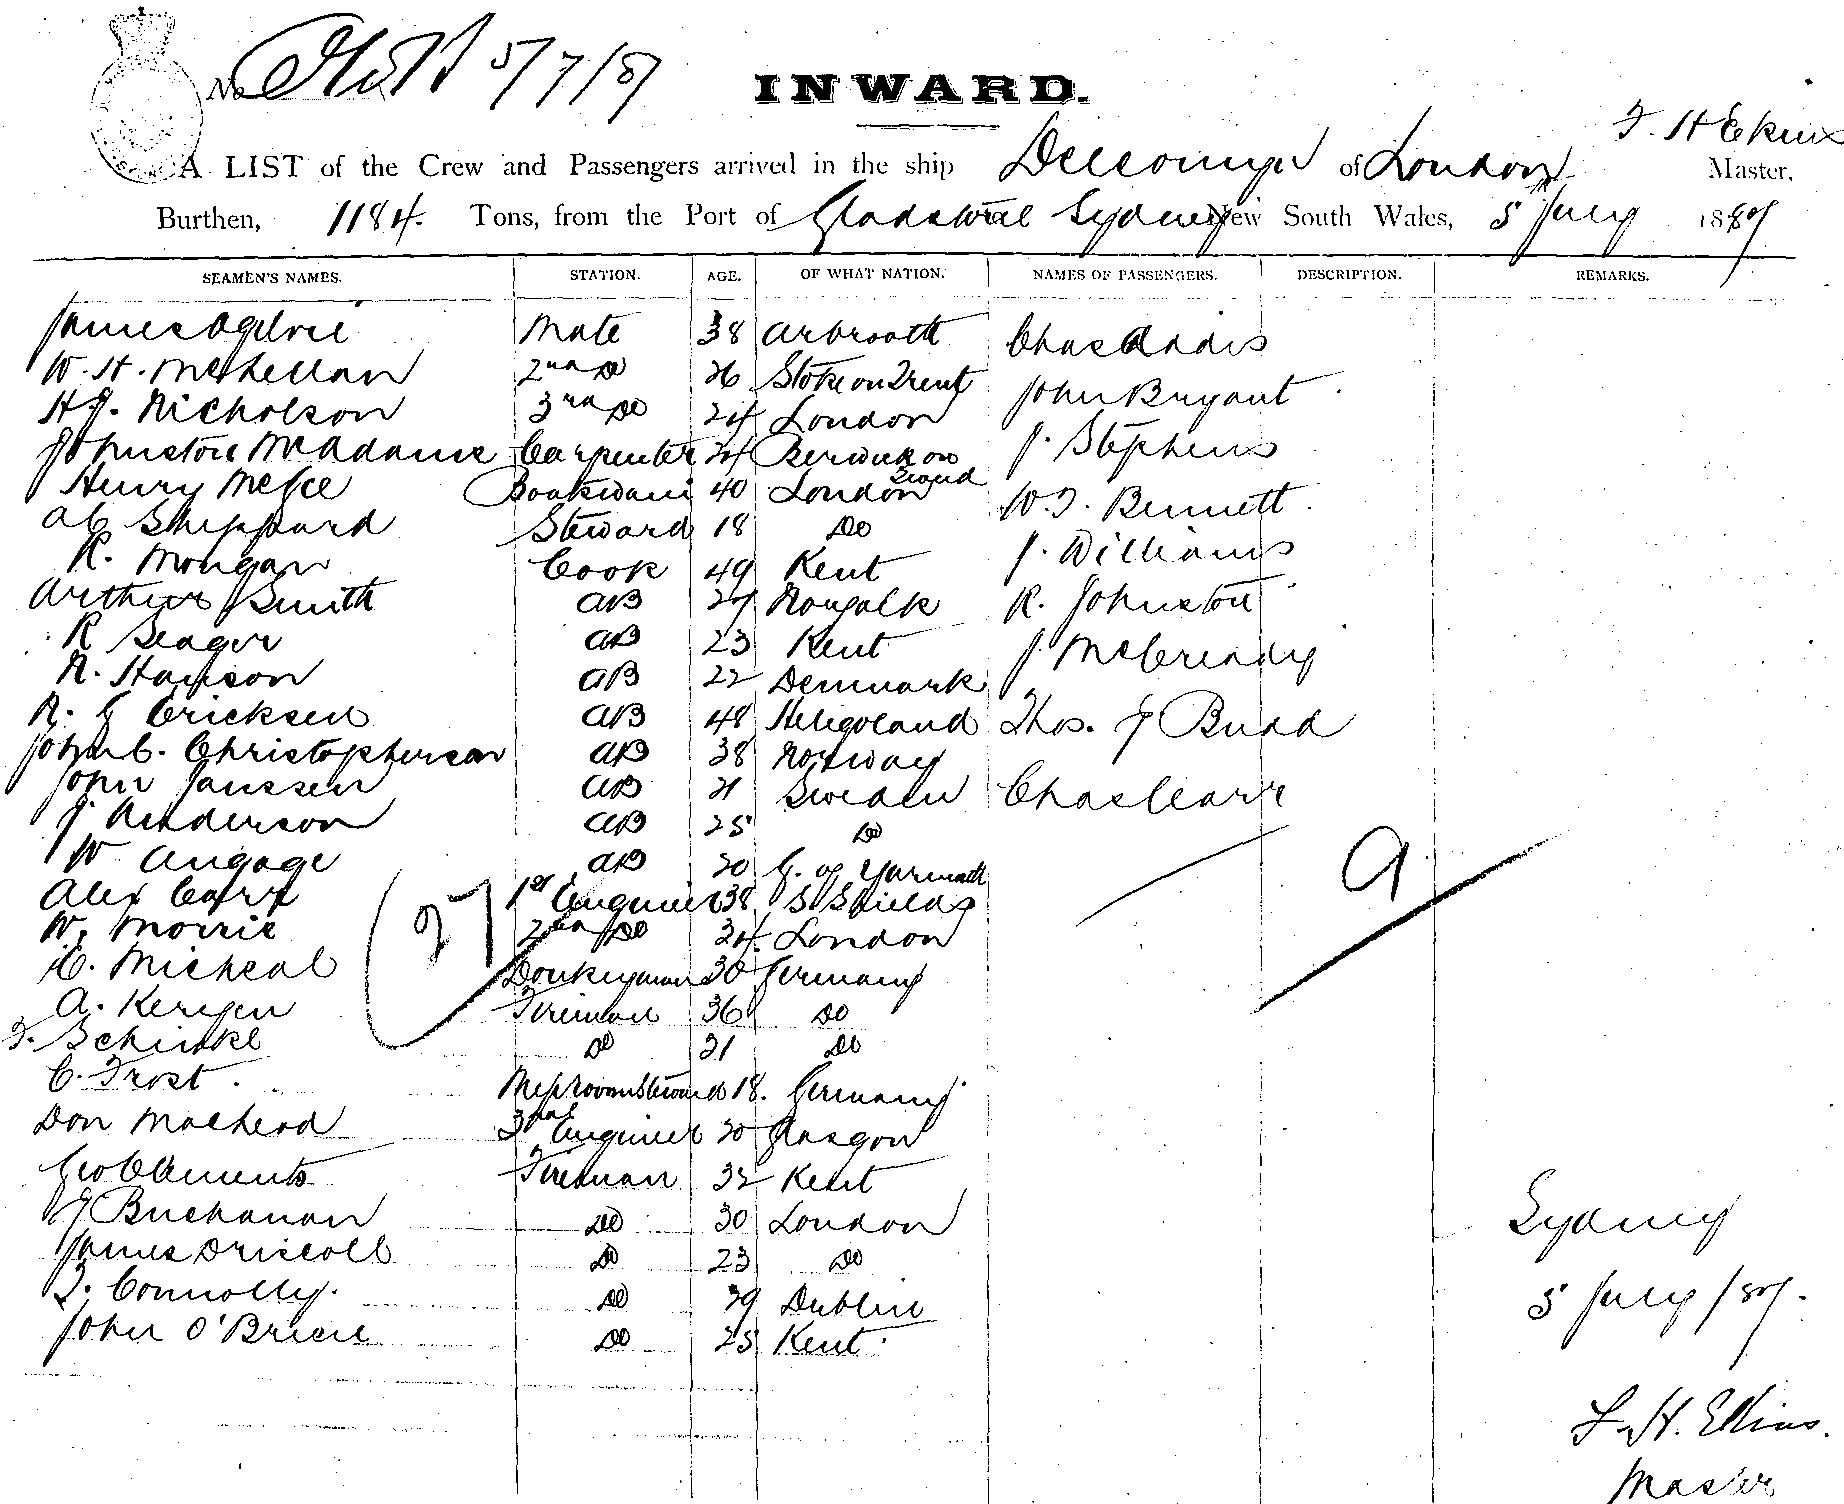 No 5/7/87
INWARD.
F. H Ekins
A LIST of the Crew and Passengers arrived in the ship Delcomyn of London Master,
Burthen, 1184. Tons, from the Port of Gladstone Sydney New South Wales, 5 July 1887
SEAMEN'S NAMES. STATION. AGE. OF WHAT NATION. NAMES OF PASSENGERS. DESCRIPTION. REMARKS.
James Ogilvie Mate 38 Arbroath Chas Addis
W. H. McLellan 2nd Do 26 Stoke on Trent John Bryant
H J. Nicholson 3rd Do 24 London J. Stephens
Johnston McAdams Carpenter 24 Berwick on Tweed
Henry McGee Boatswain 40 London W. T. Bennett
A C Sheppard Steward 18 Do J. Williams
R. Mongan Cook 49 Kent
Arthur Smith AB 27 Norfolk R. Johnston
R Seager AB 23 Kent J. McCready
N. Hanson AB 22 Denmark
N. G Ericksen AB 48 Heligoland Thos. J Budd
John C. Christopherson AB 38 Norway
John Janssen AB 21 Sweden Chas Carr
J Anderson AB 25 Do
W Angage AB 20 G. of Yarmouth 9
Alex Carr 1st Engineer 38 S Shields
27
W. Morris 2nd Do 34 London
C. Micheal Donkeyman 30 Germany
A. Kergen Fireman 36 Do
F. Schinkl Do 31 Do
C. Frost. Messroom Steward 18. Germany
Don MacLeod 3rd Engineer 20 Glasgow
Geo Clements Fireman 32 Kent
J Buchanan Do 30 London Sydney
James Driscoll Do 23 Do
T. Connolly. Do 29 Dublin 5 July/87.
John O'Brien Do 25 Kent.
F. H. Ekins.
Master